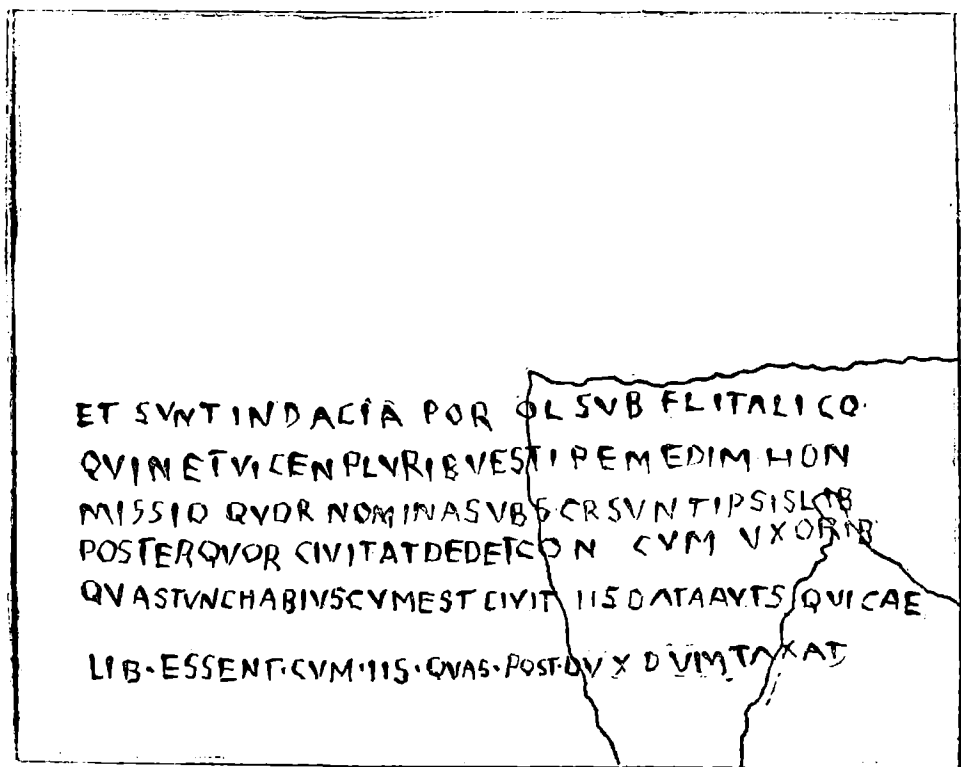 ET SVNT IN DACIA POR OL SVB FL ITALICO
QVIN ET VICEN PLVRIBVE STIPEM EDIM HON
MISSIO QVOR NOMINA SVBSCR SVNT IPSIS LIB
POSTERQVOR CIVITAT DEDET CON CVM VXORIB
QVASTVNCHABIVSCVMEST CIVIT IIS DATAAVTS QVICAE
LIB·ESSENT·CVM·IIS·QVAS·POST·DVX DVMTAXAT